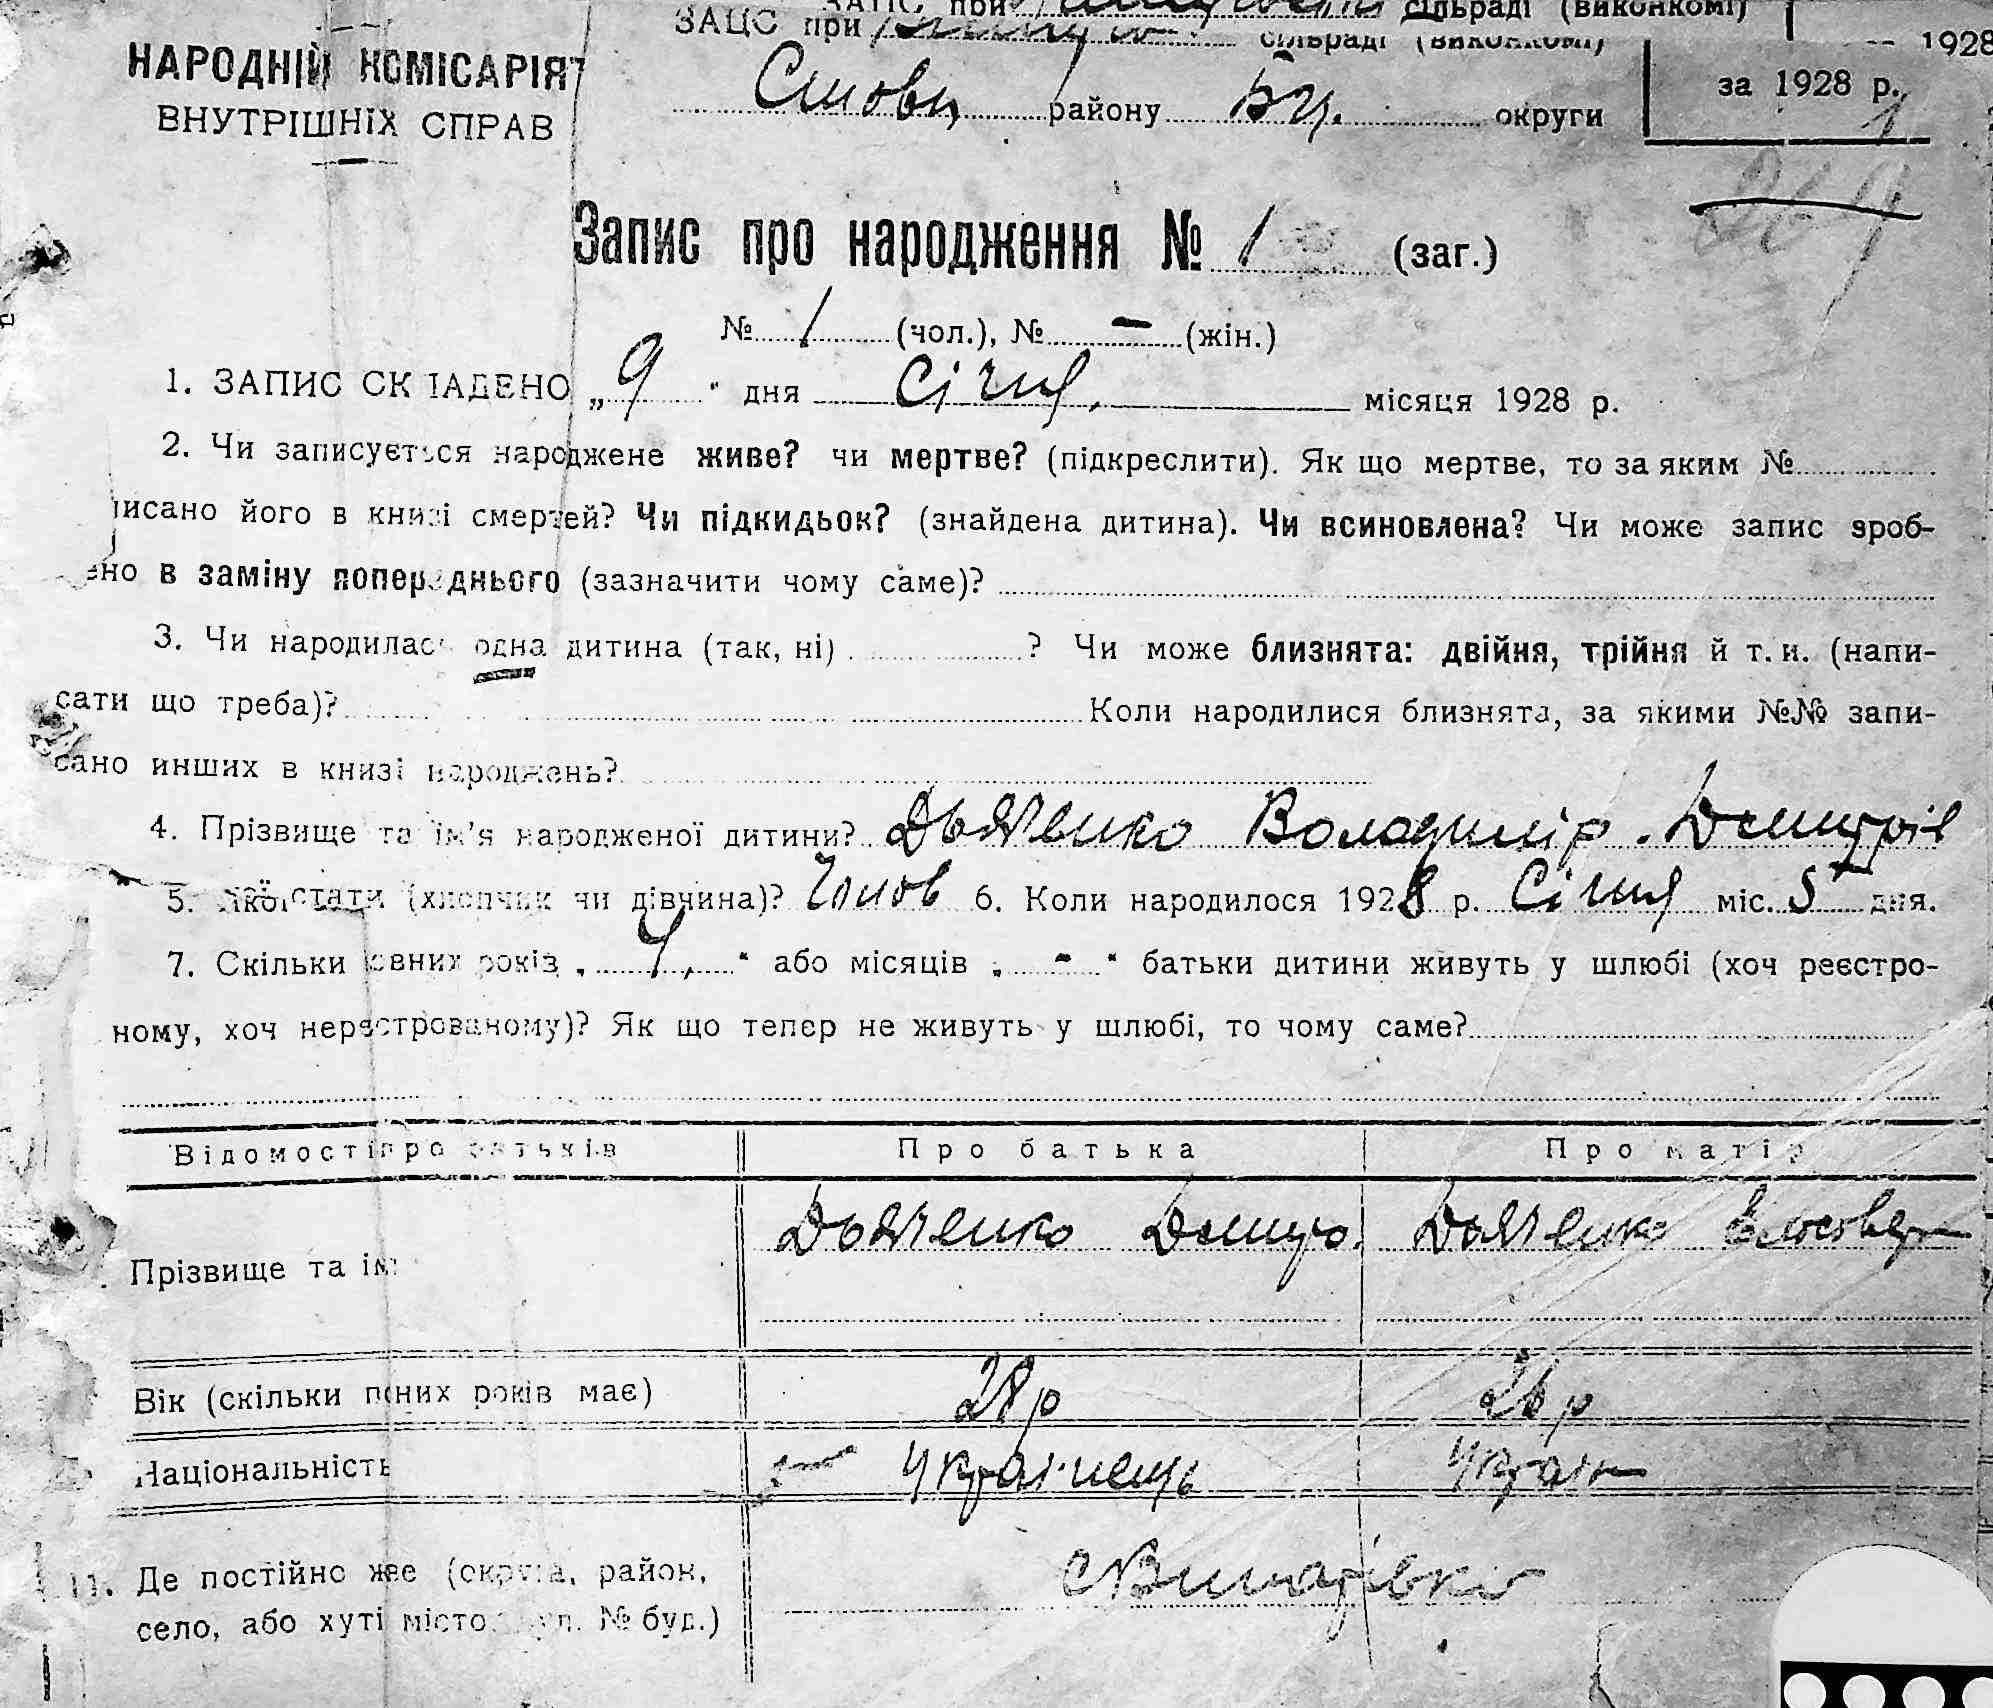 ЗАЦС при сільраді (виконкомі)
ЗАЦС при сільраді (виконкомі) 1928
НАРОДНІЙ КОМІСАРІЯТ
ВНУТРІШНІХ СПРАВ
району округи
за 1928 р.
Запис про народження № 1 (заг.)
№ 1 (чол.), № – (жін.)
1. ЗАПИС СКЛАДЕНО „9“ дня Січня місяця 1928 р.
2. Чи записується народжене живе? чи мертве? (підкреслити). Як що мертве, то за яким №
писано його в книзі смертей? Чи підкидьок? (знайдена дитина). Чи всиновлена? Чи може запис зроб-
ено в заміну попереднього (зазначити чому саме)?
3. Чи народилась одна дитина (так, ні) ? Чи може близнята: двійня, трійня й т. и. (напи-
сати що треба)? Коли народилися близнята, за якими №№ запи-
сано инших в книзі народжень?
4. Прізвище та їм'я народженої дитини? Дьяченко Володимір. Дмитрів
5. Якої стати (хлопчик чи дівчина)? Чолов 6. Коли народилося 1928 р. Січня міс. 5 дня.
7. Скільки повних років „4,“ або місяців „-“ батьки дитини живуть у шлюбі (хоч реєстро-
ному, хоч нереєстрованому)? Як що тепер не живуть у шлюбі, то чому саме?
Відомості про батьків Про батька Про матір
Дьяченко Дмитро. Дьяченко
Прізвище та ім
Вік (скільки повних років має) 28 р 26 р
Національність Українець Україн
11. Де постійно живе (округа, район,
село, або хутір місто, вул. № буд.)